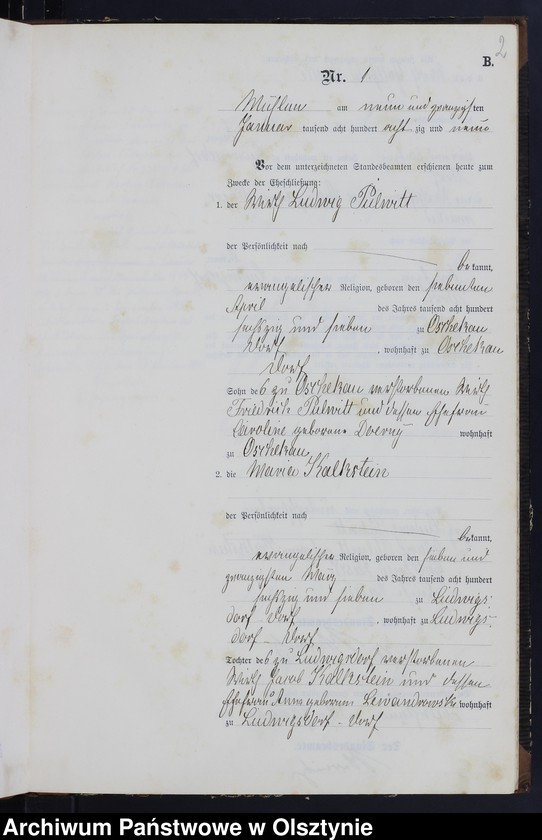 2
B.
Nr. 1
Mühlen am neun und zwanzigsten
Januar tausend acht hundert acht zig und neun
Vor dem unterzeichneten Standesbeamten erschienen heute zum
Zwecke der Eheschließung:
1. der Wirth Ludwig Pulwitt
der Persönlichkeit nach
bekannt,
evangelischer Religion, geboren den siebenten
April des Jahres tausend acht hundert
sechszig und sieben zu Oschekau
Dorf, wohnhaft zu Oschekau
Dorf
Sohn des zu Oschekau verstorbenen Wirth
Friedrich Pulwitt und dessen Ehefrau
Caroline geborene wohnhaft
zu Oschekau
2. die Maria Kalkstein
der Persönlichkeit nach
bekannt,
evangelischer Religion, geboren den sieben und
zwanzigsten März des Jahres tausend acht hundert
sechszig und sieben zu Ludwigs-
dorf Dorf, wohnhaft zu Ludwigs-
dorf - Dorf
Tochter des zu Ludwigsdorf verstorbenen
Wirth Jacob Kalkstein und dessen
Ehefrau Anna geborene Lewandowski wohnhaft
zu Ludwigsdorf - Dorf
Archiwum Państwowe w Olsztynie